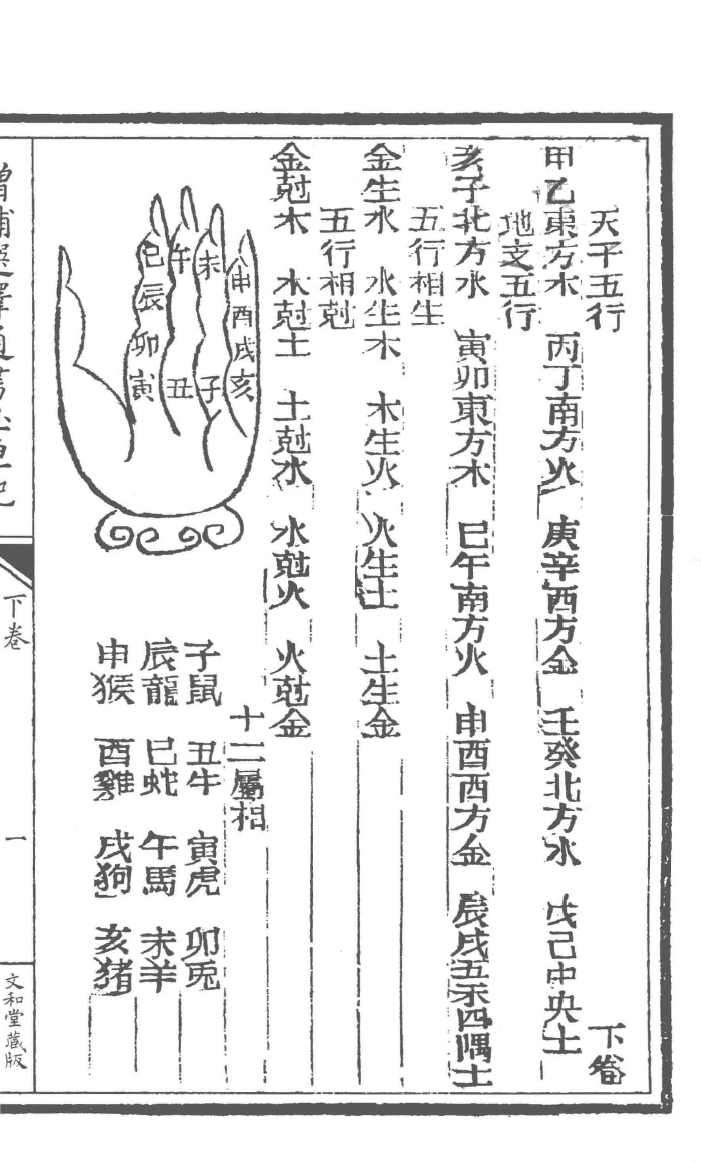 天干五行 下卷
甲乙東方木 丙丁南方火 庚辛西方金 壬癸北方水 戊己中央土
地支五行
亥子北方水 寅卯東方木 巳午南方火 申酉西方金 辰戌丑未四隅土
五行相生
金生水 水生木 木生火 火生土 土生金
五行相剋
金剋木 木剋土 土剋水 水剋火 火剋金
十二屬相
子鼠 丑牛 寅虎 卯兎
辰龍 巳蛇 午馬 未羊
申猴 酉雞 戌狗 亥猪
申酉戌亥
未子
午丑
巳辰卯寅
下卷 一 文和堂藏版